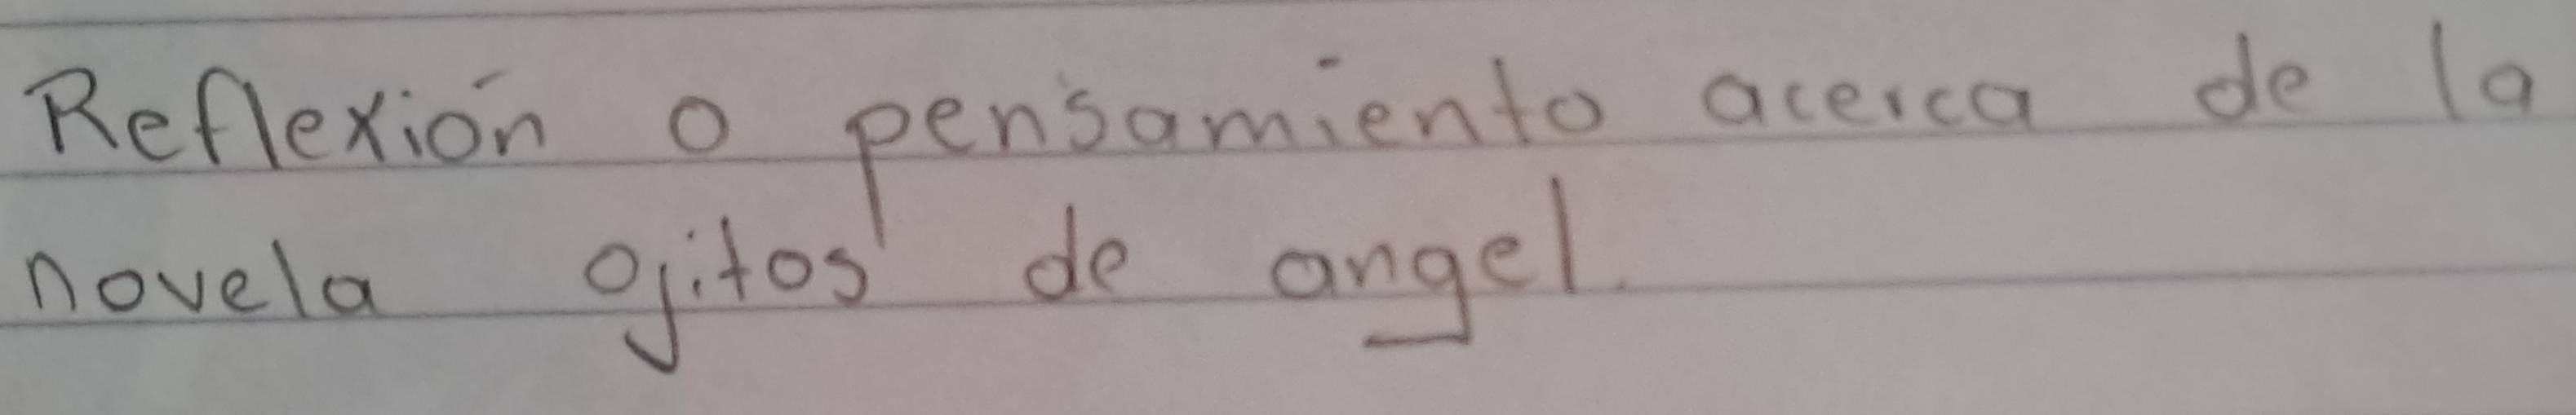 Reflexión o pensamiento acerca de la
novela ojitos de angel.